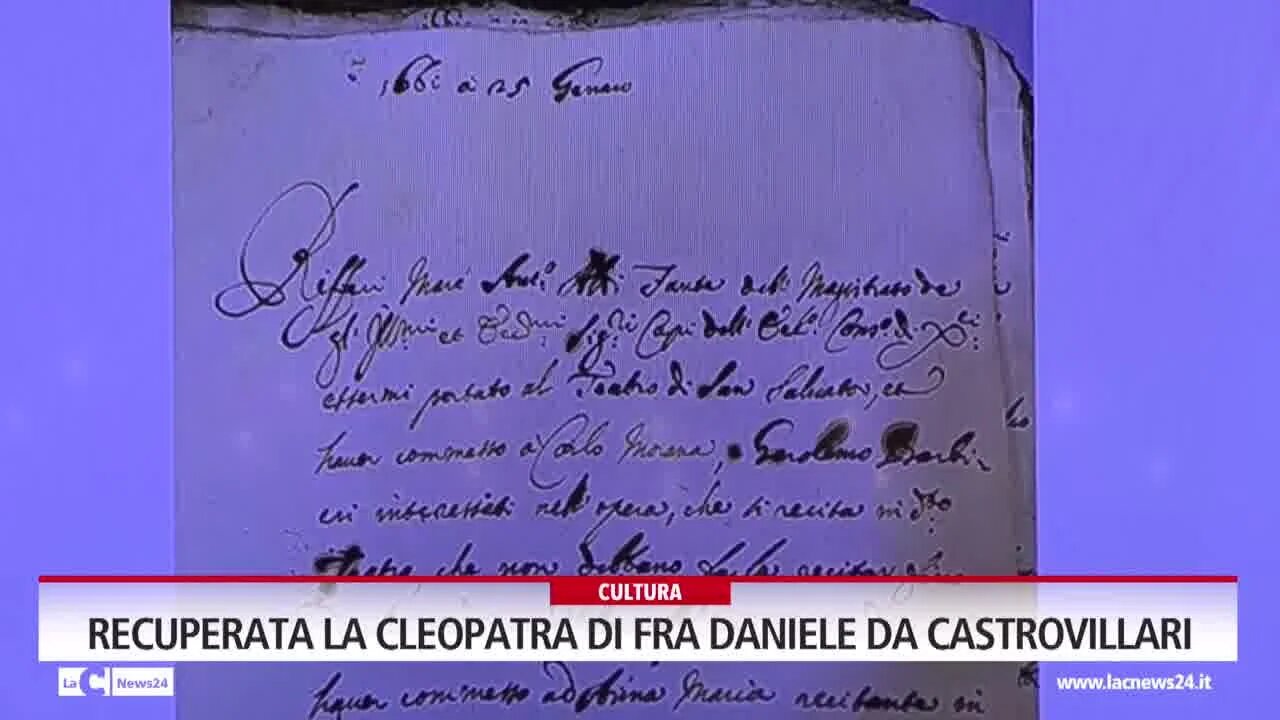 1661 a 25 Genaro
Rifferi Marc' Ant.º Fante dell' Magistrato de
gl' Ill.mi et Ecc.mi Sig.ri Capi dell' Ecc.º Cons.º di X.ci
essermi portato al Teatro di San Salvator, et
hauer commesso a Carlo Morana, e Gerolemo Barbi-
eri interessati nell' opera, che si recita in d.tto
Teatro che non debbano farla recitar
CULTURA
RECUPERATA LA CLEOPATRA DI FRA DANIELE DA CASTROVILLARI
LaC News24
www.lacnews24.it
hauer commesso ad Maria recitante in